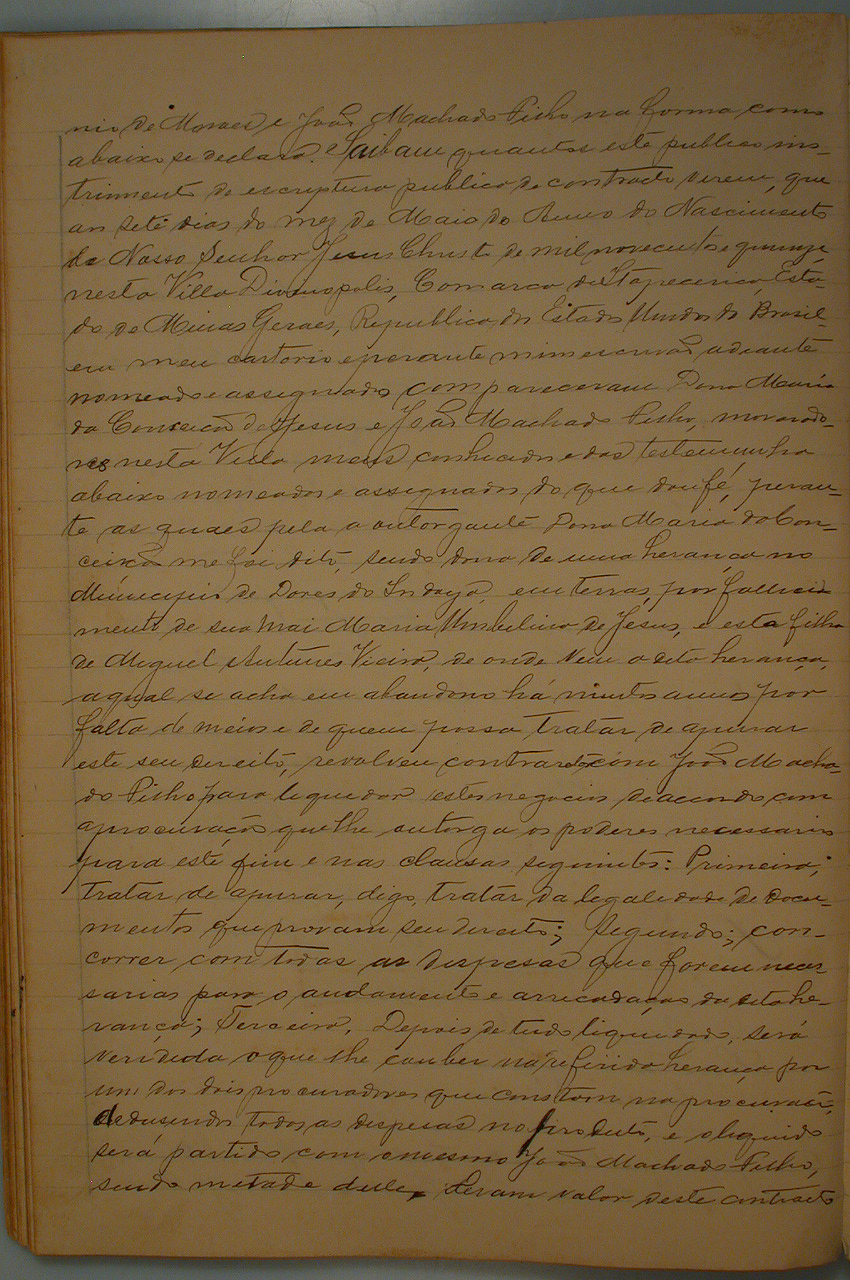 nio de Moraes e João Machado Pinho na forma como
abaixo se declara. Saibam quantos este publico ins-
trumento de escriptura publica de contracto virem, que
aos sete dias do mez de Maio do Anno do Nascimento
de Nosso Senhor Jesus Christo de mil novecentos e quinze,
nesta Villa Divinopolis, Comarca de Itapecerica, Esta-
do de Minas Geraes, Republica dos Estados Unidos do Brasil-
em meu cartorio e perante mim escrivão adiante
nomeado e assegnado compareceram Dona Maria
da Conceicão de Jesus e João Machado Pinho, morarado-
res nesta Villa meus conhecidos e das testemunha
abaixo nomeados e assegnados do que dou fé, peran-
te as quaes pela a outorgante Dona Maria da Con-
ceição me foi dito, sendo dona de uma herança no
Municipio de Dores do Indayá, em terras, por falleci
mento de sua mai Maria Umbelina de Jesus, e esta filha
de Miguel Antunes Vieira, de onde vem a dita herança,
a qual se acha em abandono há muitos annos por
falta de meios e de quem possa tratar de apurar
este seu direito, resolveu contractar com João Macha-
do Pinho para liquedar estes negocios de accordo com
a procuração que lhe outorga os poderes necessarios
para este fim e nas clausas seguintes: Primeira;
tratar de apurar, digo, tratar da legalidade de docu-
mentos que provam seu direito; Segundo; con-
correr com todas as despesas que forem neces
sarias para o andamento e arrecadação da dita he-
rança; Terceira. Depois de tudo liquedado, será
vendida o que lhe couber na refirida herança por
um dos dois procuradores que constam na procuração,
dedusendo todas as despesas no producto, e o liquido
será partido com o mesmo João Machado Pinho,
sendo metade delle, deram valor deste contracto